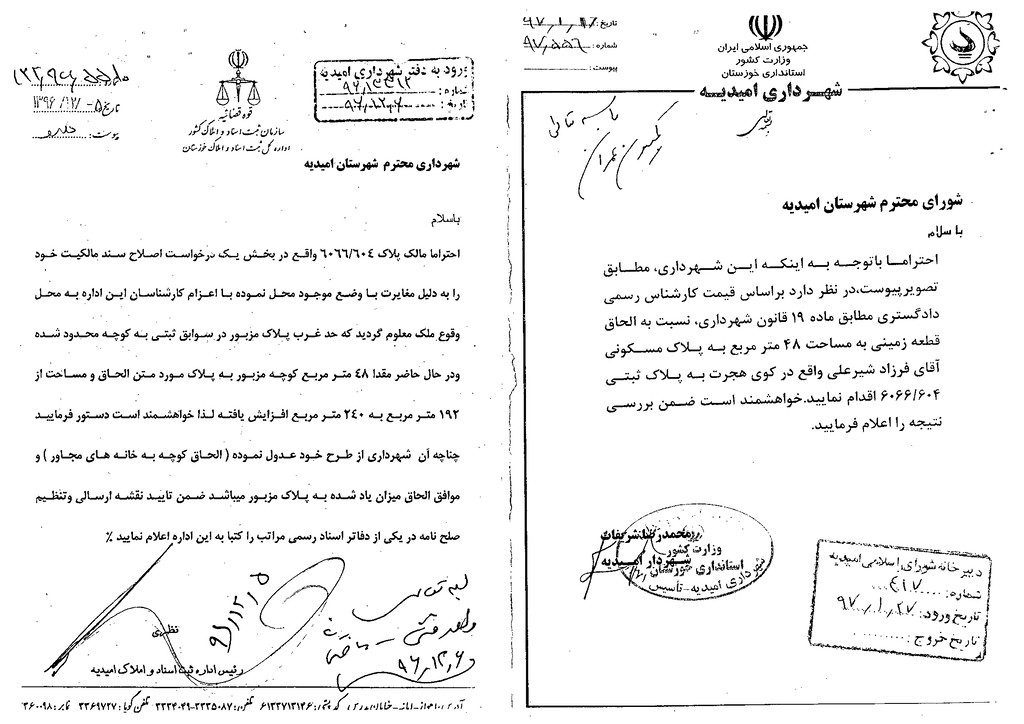 جمهوری اسلامی ایران
وزارت کشور
استانداری خوزستان
شهرداری امیدیه
تاریخ:
شماره: ۹۷٫۵۵۶
پیوست:
باسمه تعالی
کمیسیون عمران
شورای محترم شهرستان امیدیه
با سلام
احتراما باتوجه به اینکه این شهرداری، مطابق
تصویرپیوست،در نظر دارد براساس قیمت کارشناس رسمی
دادگستری مطابق ماده ۱۹ قانون شهرداری، نسبت به الحاق
قطعه زمینی به مساحت ۴۸ متر مربع به پلاک مسکونی
آقای فرزاد شیرعلی واقع در کوی هجرت به پلاک ثبتی
۶۰۶۶/۶۰۴ اقدام نمایید.خواهشمند است ضمن بررسی
نتیجه را اعلام فرمایید.
محمدرضا شریفات
شهردار امیدیه
وزارت کشور
استانداری خوزستان
شهرداری امیدیه-تأسیس
دبیرخانه شورای اسلامی امیدیه
شماره: ۴۱۷
تاریخ ورود: ۹۷٫۱٫۲۷
تاریخ خروج:
قوه قضائیه
سازمان ثبت اسناد و املاک کشور
اداره کل ثبت اسناد و املاک خوزستان
ورود به دفتر شهرداری امیدیه
شماره:
تاریخ:
تاریخ ۵-/۱۲/ ۱۳۹۶
پیوست: دارد
شهرداری محترم شهرستان امیدیه
باسلام
احتراما مالک پلاک ۶۰۶۶/۶۰۴ واقع در بخش یک درخواست اصلاح سند مالکیت خود
را به دلیل مغایرت با وضع موجود محل نموده با اعزام کارشناسان این اداره به محل
وقوع ملک معلوم گردید که حد غرب پلاک مزبور در سوابق ثبتی به کوچه محدود شده
ودر حال حاضر مقدا ۴۸ متر مربع کوچه مزبور به پلاک مورد متن الحاق و مساحت از
۱۹۲ متر مربع به ۲۴۰ متر مربع افزایش یافته لذا خواهشمند است دستور فرمایید
چناچه آن شهرداری از طرح خود عدول نموده ( الحاق کوچه به خانه های مجاور ) و
موافق الحاق میزان یاد شده به پلاک مزبور میباشد ضمن تایید نقشه ارسالی وتنظیم
صلح نامه در یکی از دفاتر اسناد رسمی مراتب را کتبا به این اداره اعلام نمایید ٪
نظری
رئیس اداره ثبت اسناد و املاک امیدیه
۹۶٫۱۲٫۵
بسمه تعالی
۹۶٫۱۲٫۶
آدرس:اهواز-امانیه-خیابان مدرس کد پستی:۶۱۳۳۷۱۳۱۴۶ تلفن:۳۳۳۵۰۸۷-۳۳۳۴۰۴۹ تلفن گویا:۳۳۶۹۷۲۷ نمابر:۳۶۰۰۹۸